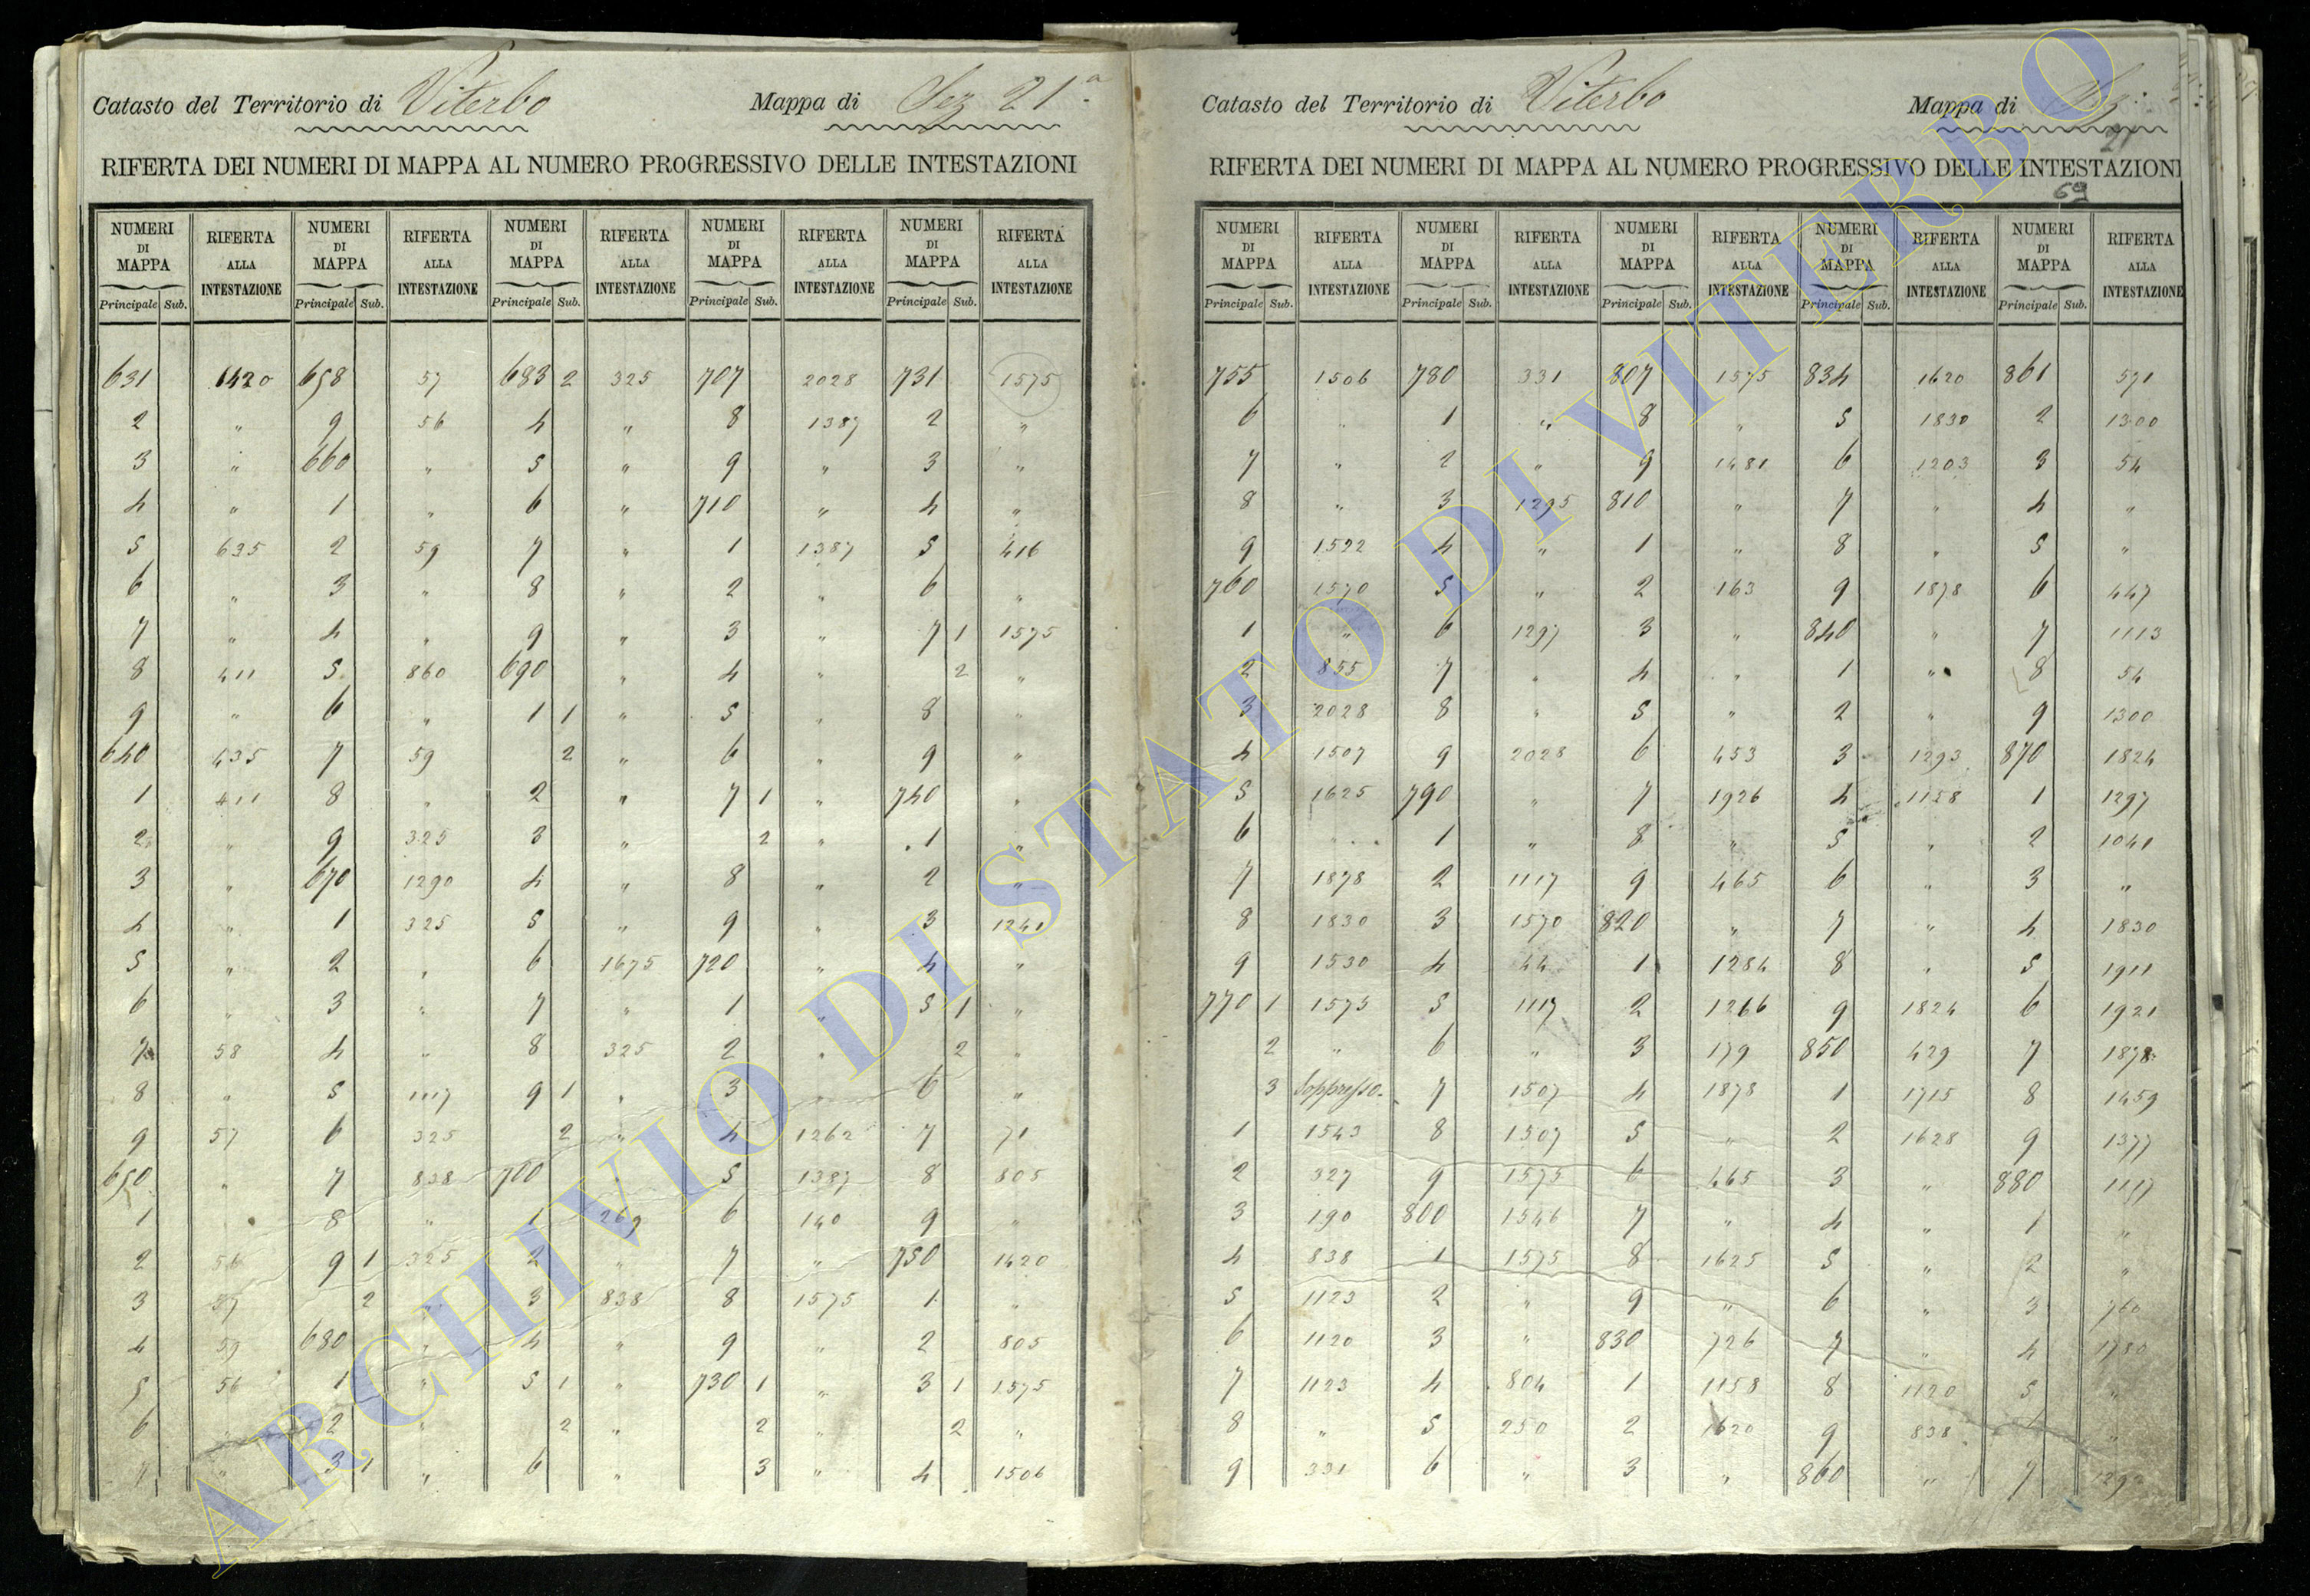 Catasto del Territorio di Viterbo Mappa di Sez 21.a
RIFERTA DEI NUMERI DI MAPPA AL NUMERO PROGRESSIVO DELLE INTESTAZIONI
NUMERI DI MAPPA RIFERTA ALLA INTESTAZIONE NUMERI DI MAPPA RIFERTA ALLA INTESTAZIONE NUMERI DI MAPPA RIFERTA ALLA INTESTAZIONE NUMERI DI MAPPA RIFERTA ALLA INTESTAZIONE NUMERI DI MAPPA RIFERTA ALLA INTESTAZIONE
Principale Sub. Principale Sub. Principale Sub. Principale Sub. Principale Sub.
631 1420 658 57 683 2 325 707 2028 731 1575
2 " 9 56 4 " 8 1387 2 "
3 " 660 " 5 " 9 " 3 "
4 " 1 " 6 " 710 " 4 "
5 635 2 59 7 " 1 1387 5 416
6 " 3 " 8 " 2 " 6 "
7 " 4 " 9 " 3 " 7 1 1575
8 411 5 860 690 " 4 " 2 "
9 " 6 " 1 1 " 5 " 8 "
640 435 7 59 2 " 6 " 9 "
1 411 8 " 2 " 7 1 " 740 "
2 " 9 325 3 " 2 " 1 "
3 " 670 1290 4 " 8 " 2 "
4 " 1 325 5 " 9 " 3 1241
5 " 2 " 6 1675 720 " 4 "
6 " 3 " 7 " 1 " 5 1 "
7 58 4 " 8 325 2 " 2 "
8 " 5 1117 9 1 " 3 " 6 "
9 57 6 325 2 " 4 1262 7 71
650 " 7 838 700 " 5 1387 8 805
1 " 8 " 1 269 6 140 9 "
2 56 9 1 325 2 " 7 " 750 1420
3 57 2 " 3 838 8 1575 1 "
4 59 680 " 4 " 9 " 2 805
5 56 1 " 5 1 " 730 1 " 3 1 1575
6 " 2 " 2 " 2 " 2 "
7 " 3 1 " 6 " 3 " 4 1506
Catasto del Territorio di Viterbo Mappa di Sez:
21
RIFERTA DEI NUMERI DI MAPPA AL NUMERO PROGRESSIVO DELLE INTESTAZIONI
69
NUMERI DI MAPPA RIFERTA ALLA INTESTAZIONE NUMERI DI MAPPA RIFERTA ALLA INTESTAZIONE NUMERI DI MAPPA RIFERTA ALLA INTESTAZIONE NUMERI DI MAPPA RIFERTA ALLA INTESTAZIONE NUMERI DI MAPPA RIFERTA ALLA INTESTAZIONE
Principale Sub. Principale Sub. Principale Sub. Principale Sub. Principale Sub.
755 1506 780 331 807 1575 834 1620 861 571
6 " 1 " 8 " 5 1830 2 1300
7 " 2 " 9 1481 6 1203 3 54
8 " 3 1295 810 " 7 " 4 "
9 1522 4 " 1 " 8 " 5 "
760 1570 5 " 2 163 9 1878 6 447
1 " 6 1297 3 " 840 " 7 1113
2 855 7 " 4 " 1 " 8 54
3 2028 8 " 5 " 2 " 9 1300
4 1507 9 2028 6 453 3 1293 870 1824
5 1625 790 " 7 1926 4 1158 1 1297
6 " 1 " 8 " 5 " 2 1041
7 1878 2 1117 9 465 6 " 3 "
8 1830 3 1570 820 " 7 " 4 1830
9 1530 4 44 1 1284 8 " 5 1911
770 1 1575 5 1117 2 1266 9 1824 6 1921
2 " 6 " 3 179 850 429 7 1878
3 Soppresso 7 1507 4 1878 1 1715 8 1459
1 1543 8 1507 5 " 2 1628 9 1377
2 327 9 1575 6 465 3 " 880 1117
3 190 800 1546 7 " 4 " 1 "
4 838 1 1575 8 1625 5 " 2 "
5 1123 2 " 9 " 6 " 3 760
6 1120 3 " 830 726 7 " 4 1780
7 1123 4 804 1 1158 8 1120 5 "
8 " 5 250 2 1620 9 838 "
9 331 6 " 3 " 860 " 7 1292
ARCHIVIO DI STATO DI VITERBO